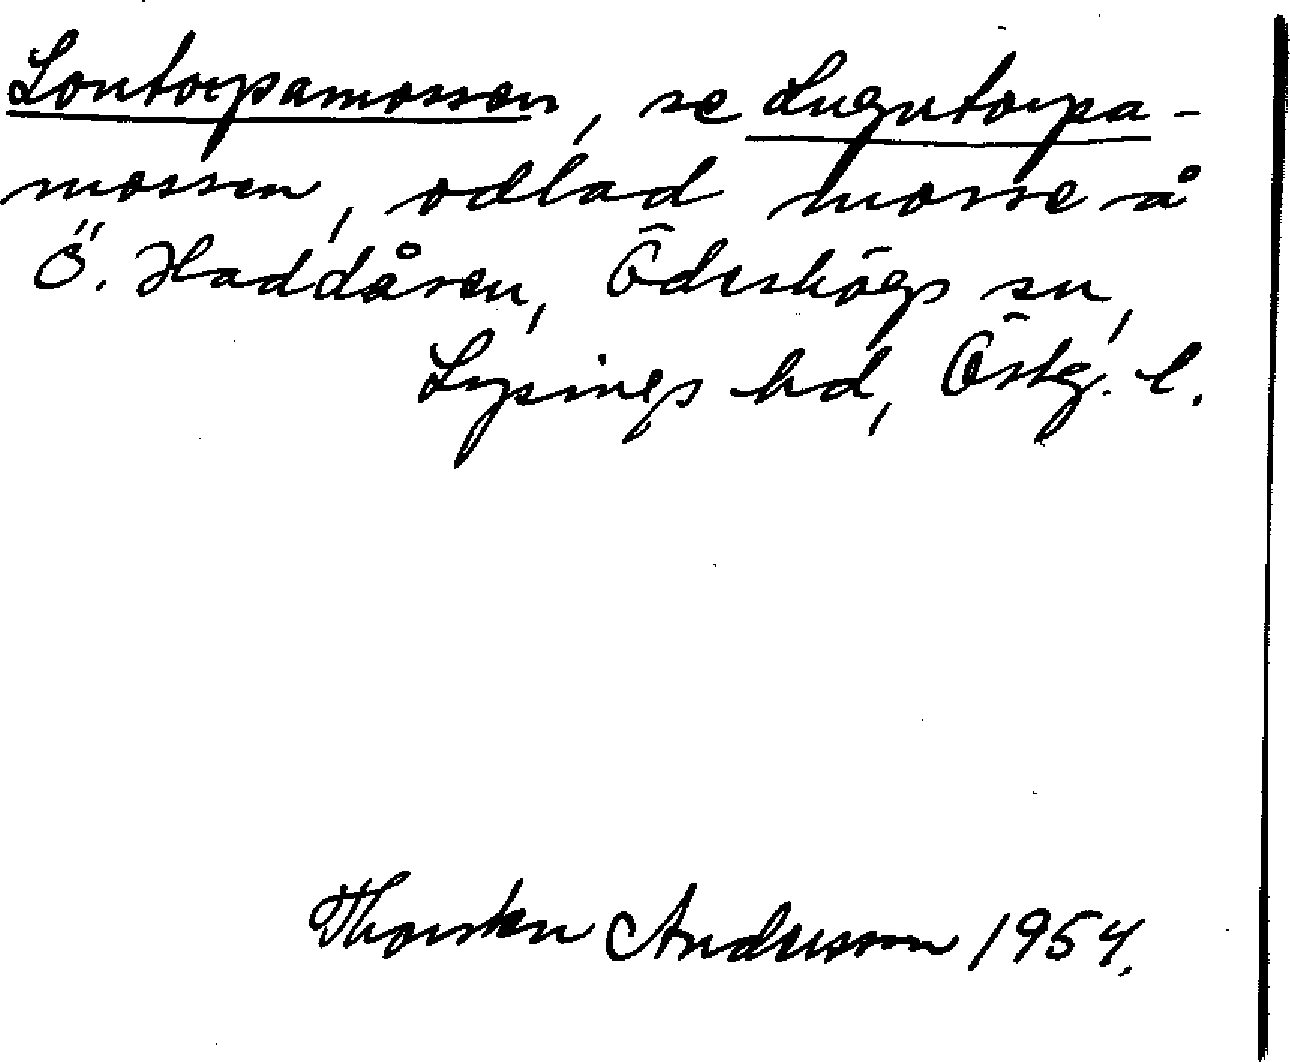 Lontorpamossen, se Lugntorpa-
mossen, odlad mosse å
Ö. Haddåsen, Ödeshögs sn,
Lysings hd, Östg. l.
Thorsten Andersson 1954.